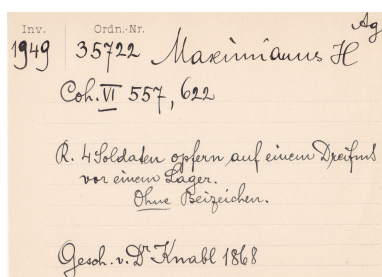 Ag
Inv. Ordn.-Nr.
1949 35722 Maximianus H
Coh. VI 557, 622
R. 4 Soldaten opfern auf einem Dreifuß
vor einem Lager.
Ohne Beizeichen.
Gesch. v. Dr Knabl 1868